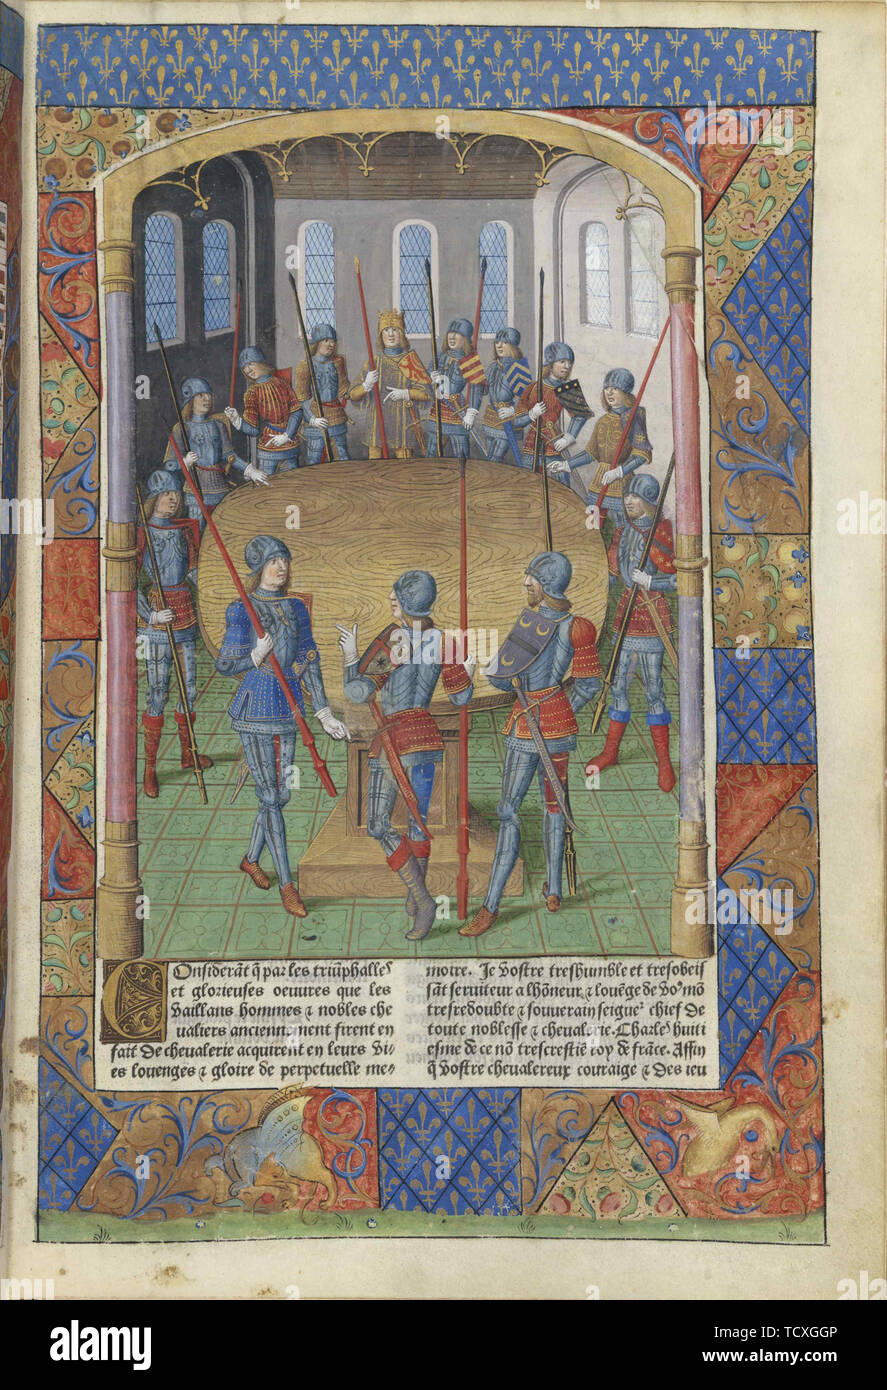 COnsiderãt q̃ par les triũphalles
et glorieuses oeuures que les
Vaillans hommes & nobles che
ualiers anciennement firent en
fait de cheualerie acquirent en leurs vi
es louenges & gloire de perpetuelle me
moire. Je Vostre treshumble et tresobeis
sãt seruiteur a lhõneur & louẽge de Vo9 mõ
tresredoubte & souuerain seigneᷣ chief de
toute noblesse & cheualerie. Charles huiti
esme de ce nõ trescrestiẽ roy de frãce. Affin
q̃ Vostre cheualereux couraige & des ieu
alamy
alamy
Image ID: TCXGGP
www.alamy.com